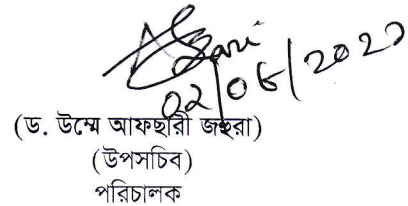 02/06/2020
(ড. উম্মে আফছারী জহুরা)
(উপসচিব)
পরিচালক